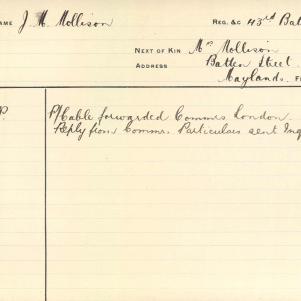 NAME J. M. Mollison REG. &C 43rd Bat
NEXT OF KIN Mrs Mollison
ADDRESS Batten Street
Maylands. F
P. P/Cable forwarded Commrs London.
Reply from Commr. Particulars sent Inq